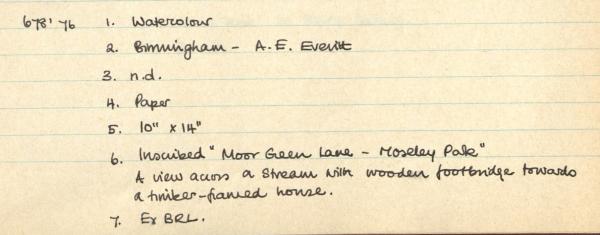 678'76 1. Watercolour
2. Birmingham - A.E. Everitt
3. n.d.
4. Paper
5. 10" x 14"
6. Inscribed "Moor Green Lane - Moseley Park"
A view across a stream with wooden footbridge towards
a timber-framed house.
7. Ex BRL.